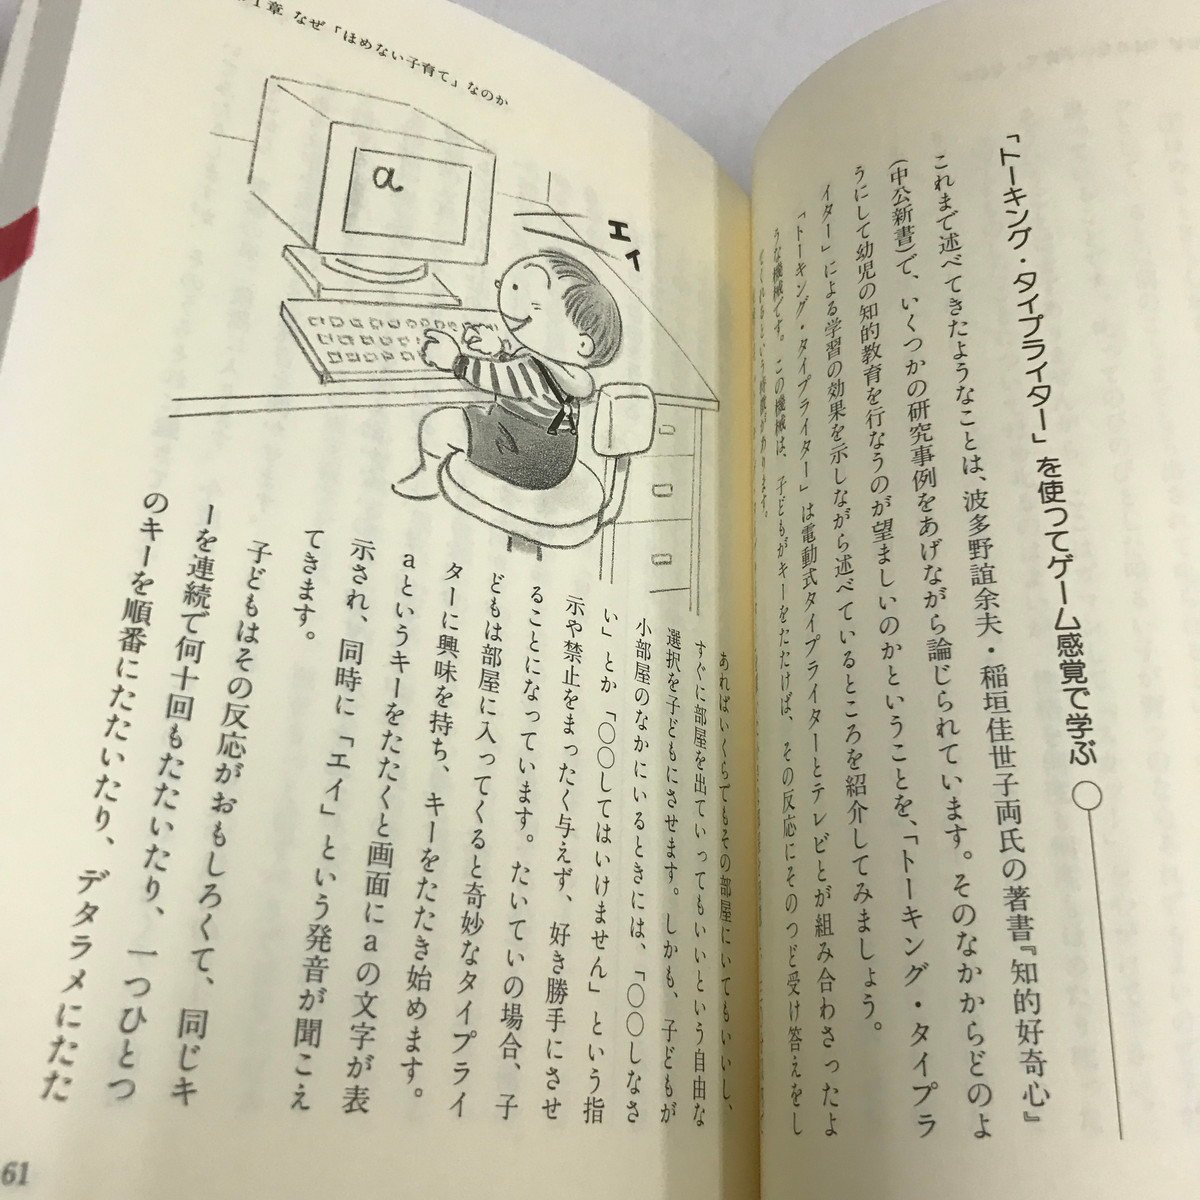 「トーキング・タイプライター」を使ってゲーム感覚で学ぶ
これまで述べてきたようなことは、波多野誼余夫・稲垣佳世子両氏の著書『知的好奇心』
(中公新書)で、いくつかの研究事例をあげながら論じられています。そのなかからどのよ
うにして幼児の知的教育を行なうのが望ましいのかということを、「トーキング・タイプラ
イター」による学習の効果を示しながら述べているところを紹介してみましょう。
「トーキング・タイプライター」は電動式タイプライターとテレビとが組み合わさったよ
うな機械です。この機械は、子どもがキーをたたけば、その反応にそのつど受け答えをし
第1章 なぜ「ほめない子育て」なのか
a
エイ
あればいくらでもその部屋にいてもいいし、
すぐに部屋を出ていってもいいという自由な
選択を子どもにさせます。しかも、子どもが
小部屋のなかにいるときには、「○○しなさ
い」とか「○○してはいけません」という指
示や禁止をまったく与えず、好き勝手にさせ
ることになっています。たいていの場合、子
どもは部屋に入ってくると奇妙なタイプライ
ターに興味を持ち、キーをたたき始めます。
aというキーをたたくと画面にaの文字が表
示され、同時に「エイ」という発音が聞こえ
てきます。
子どもはその反応がおもしろくて、同じキ
ーを連続で何十回もたたいたり、一つひとつ
のキーを順番にたたいたり、デタラメにたた
61